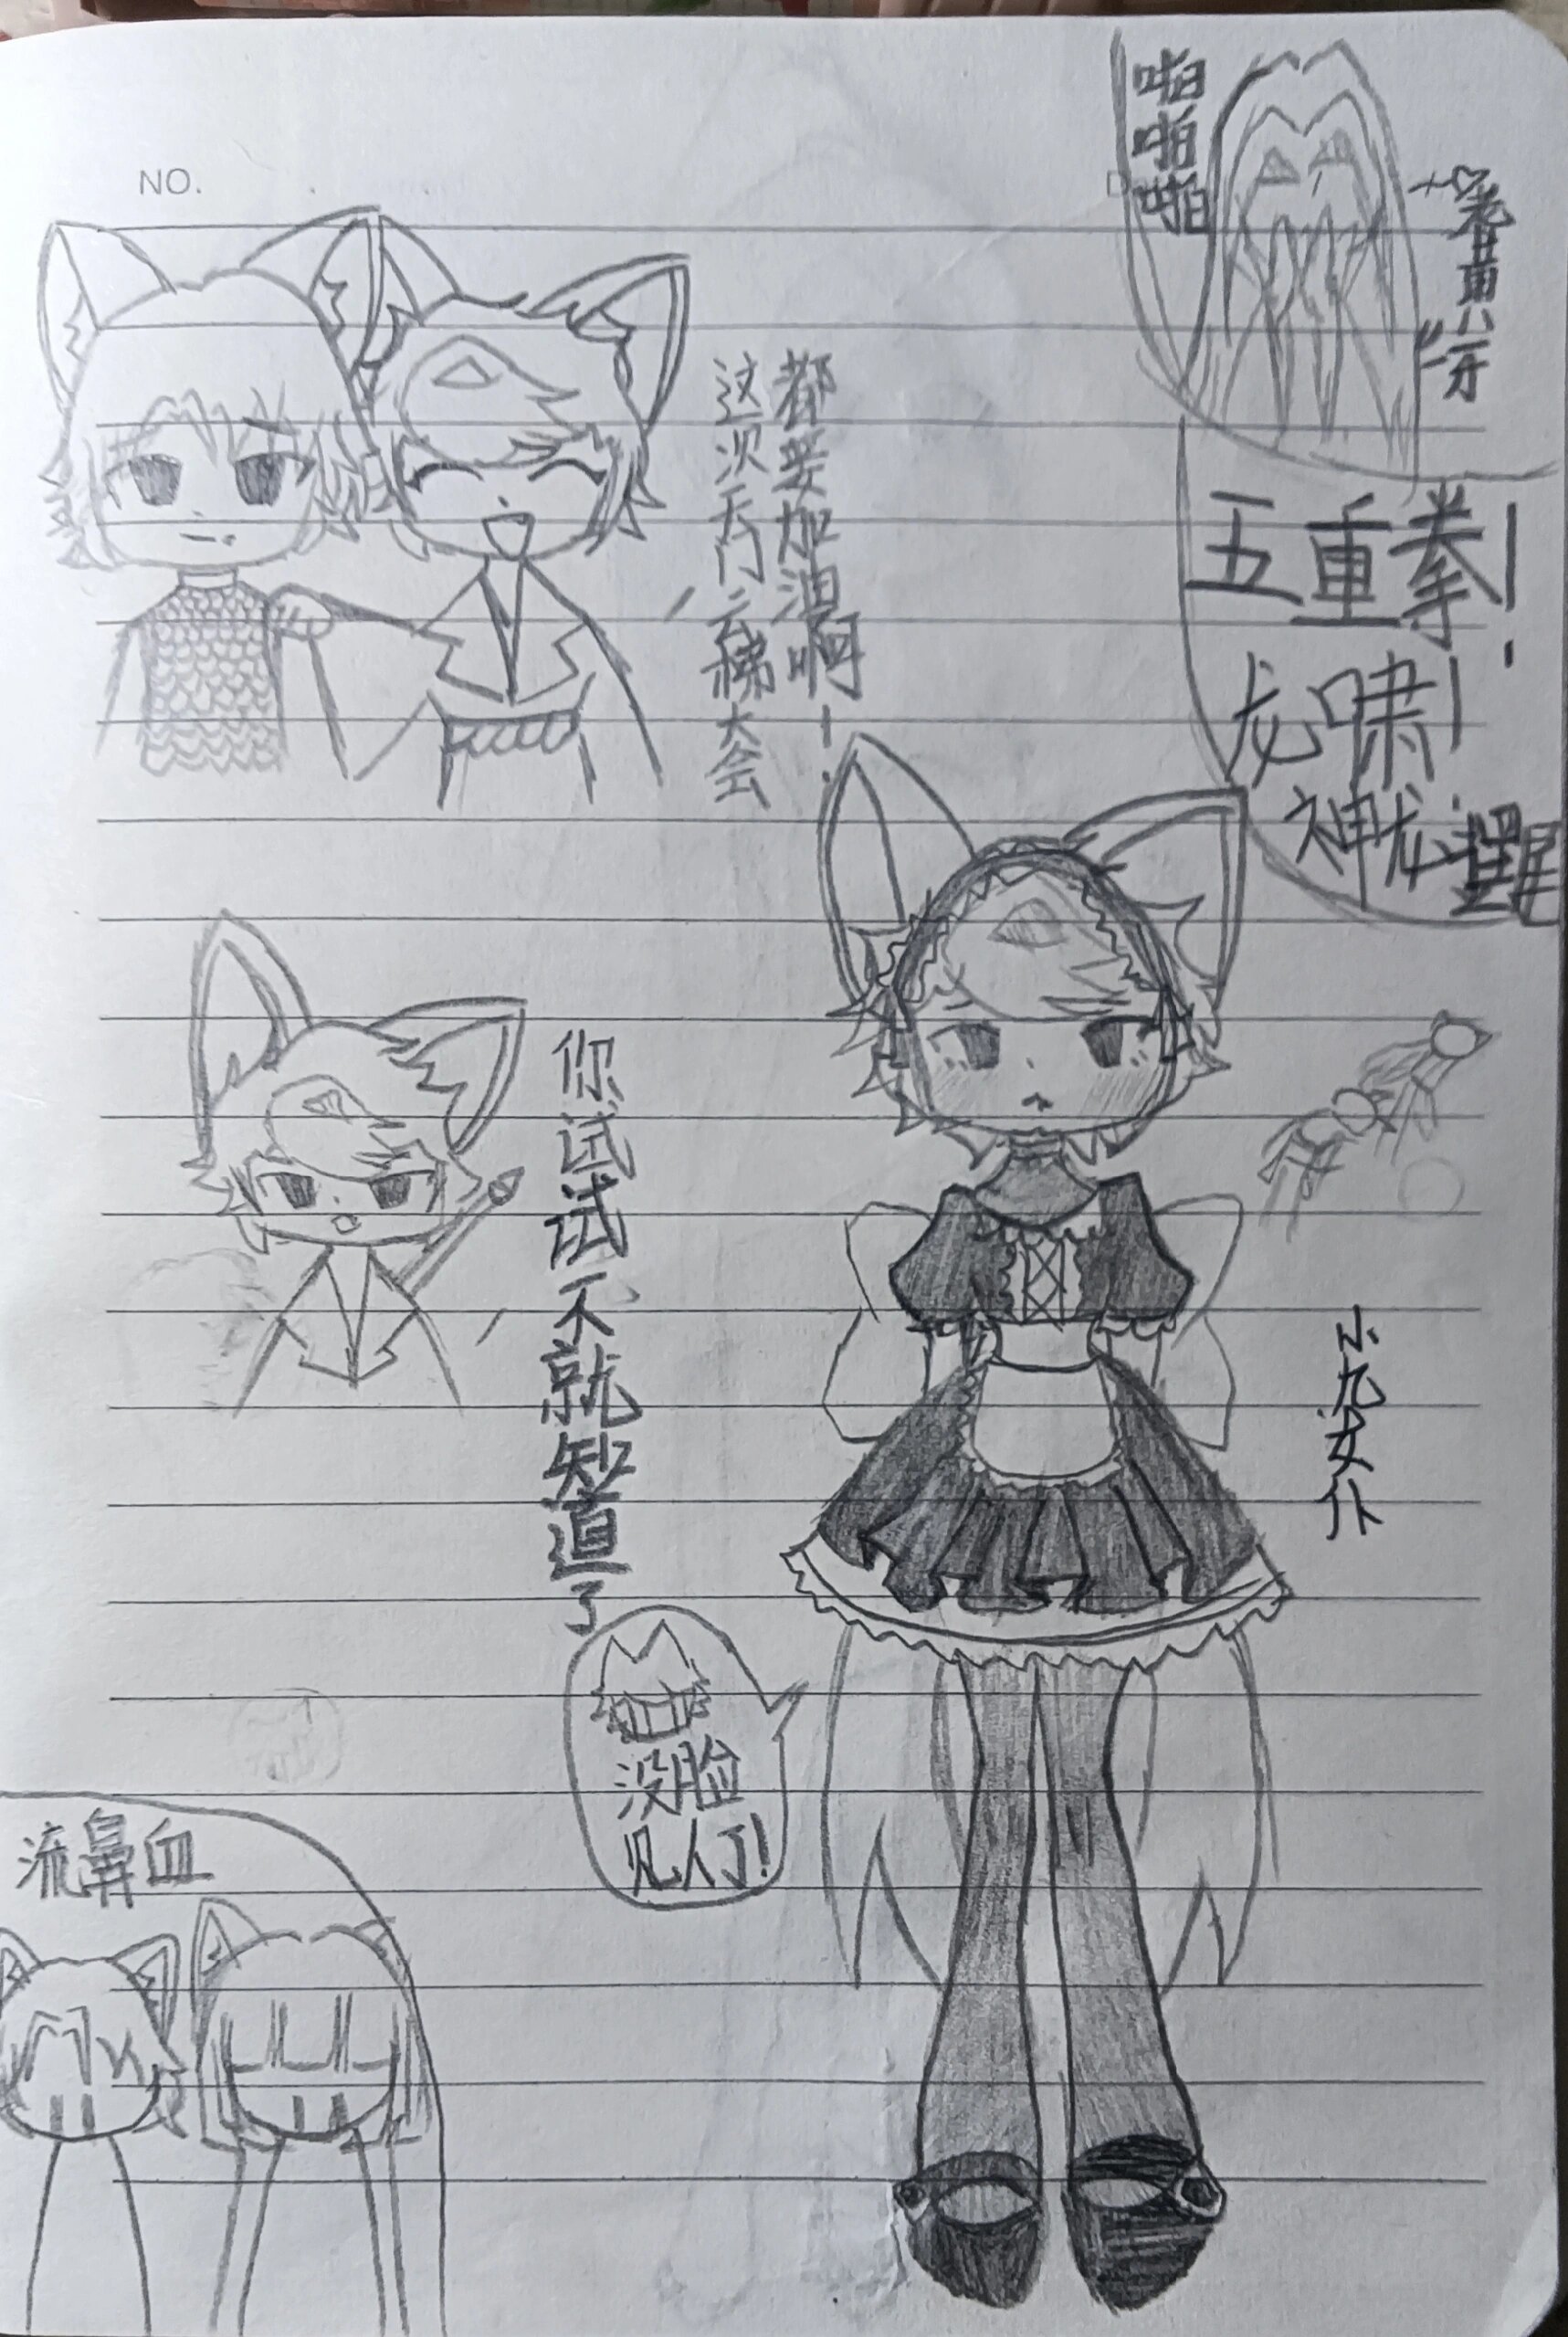 NO.
啪啪啪
五重拳!
龙啸!
神龙摆尾
都要加油啊!
这次天门云梯大会
你试试不就知道了
小九女仆
没脸
见人了!
流鼻血